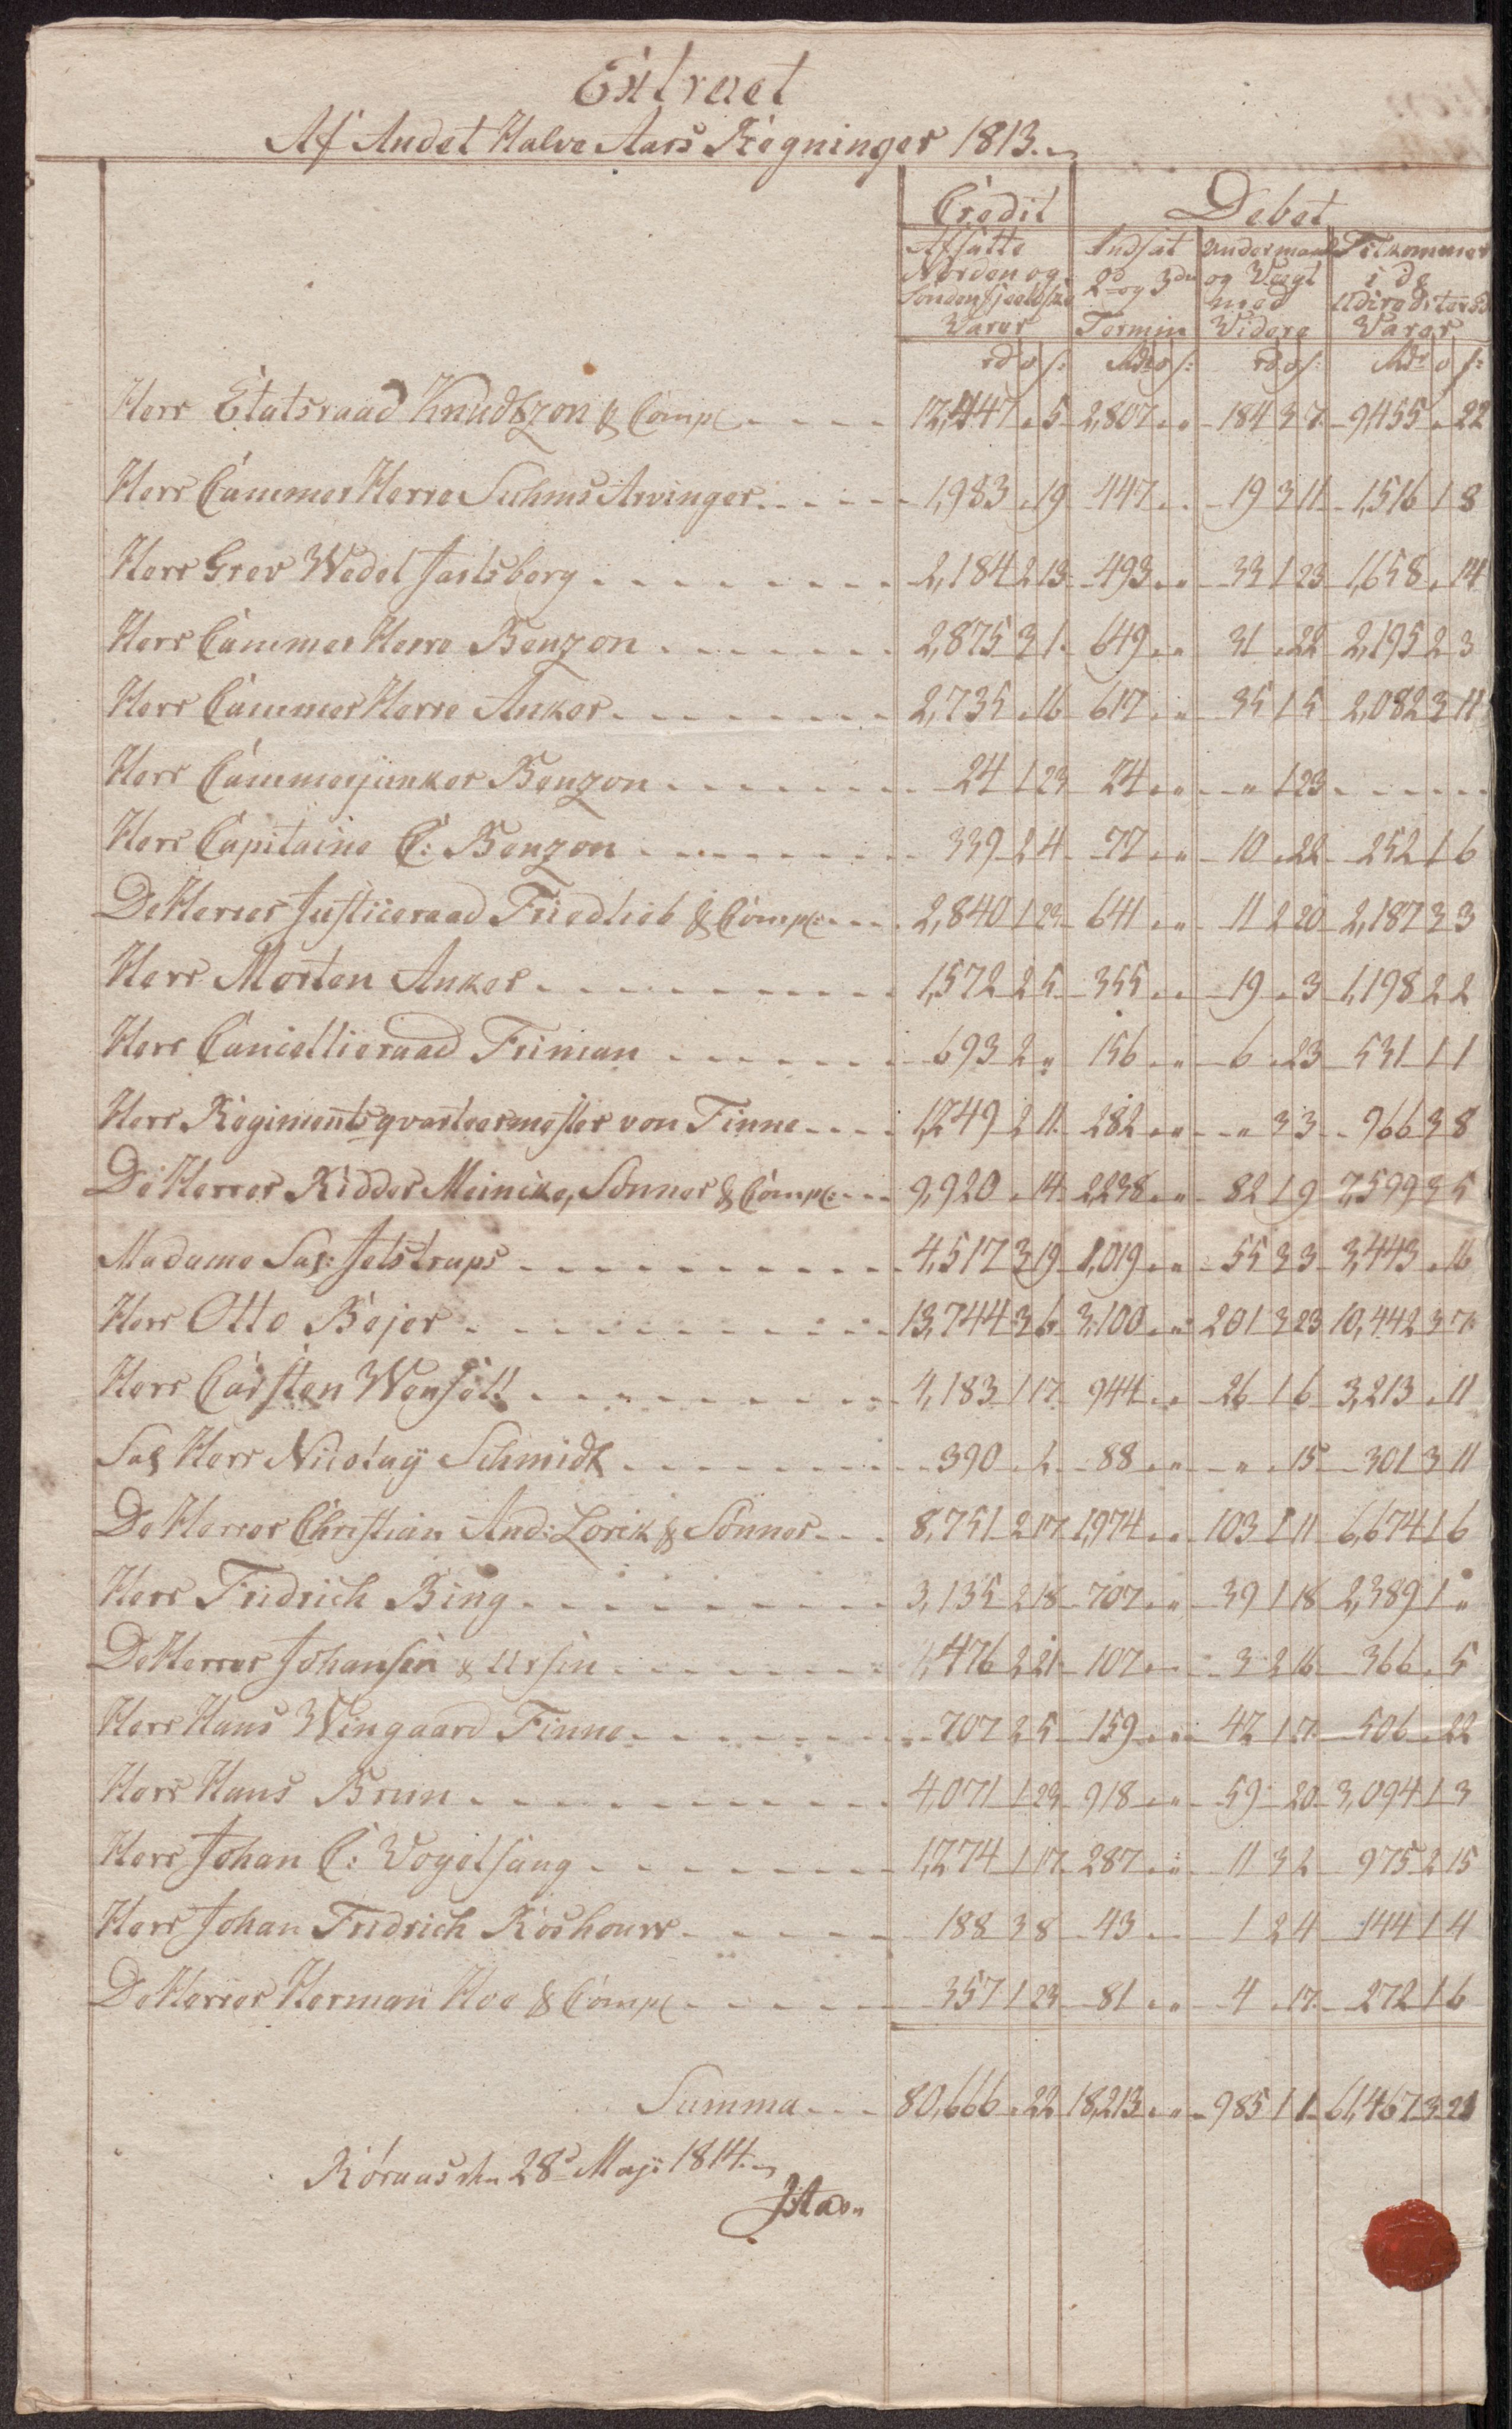 Extract
Af Andet Halve Aars Regninger 1813.
Credit Debet
Afsatte Indsat Undermaal Tilkommer
Norden og 2d og 3die og Vægt i de
Søndenfjeeldske med Udirediterede
Varer Termin Videre Varer
rd o s: Rdr o s: rd o s: Rdr o s:
Herr Etatsraad Knudtzon & Comp 12,447 " 5 2,807 " " 184 3 7 9,455 " 22
Herr CammerHerre Suhms Arvinger 1,983 " 19 447 " " 19 3 11 1,516 1 8
Herr Grev Wedel Jarlsberg 2,184 2 13 493 " " 33 1 23 1,658 " 14
Herr CammerHerre Benzon 2,875 3 1 649 " " 31 " 22 2,195 2 3
Herr CammerHerre Anker 2,735 " 16 617 " " 35 1 5 2,082 3 11
Herr Cammerjunker Benzon 24 1 23 24 " " " 1 23
Herr Capitaine C: Benzon 339 2 4 77 " " 10 " 22 252 1 6
De Herrer Justiceraad Friedlieb & Comp: 2,840 1 23 641 " " 11 2 20 2,187 3 3
Herr Morten Anker 1,572 2 5 355 " " 19 " 3 1,198 2 2
Herr Cancellieraad Friman 693 2 " 156 " " 6 " 23 531 1 1
Herr Regimentsqvarteermester von Finne 1,249 2 11 282 " " " 3 3 966 3 8
De Herrer Ridder Meincke, Sønner & Comp: 9,920 " 14 2,238 " " 82 1 9 7,599 3 5
Madame Sal: Jelstrups 4,517 3 19 1,019 " " 55 3 3 3,443 " 16
Herr Otto Bejer 13,744 3 6 3,100 " " 201 3 23 10,442 3 7
Herr Carsten Wensell 4,183 1 17 944 " " 26 1 6 3,213 " 11
Sal Herr Nicolay Schmidt 390 " 2 88 " " " " 15 301 3 11
De Herrer Christian And: Lorck & Sønner 8,751 2 17 1,974 " " 103 1 11 6,674 1 6
Herr Fridrich Bing 3,135 2 18 707 " " 39 1 18 2,389 1 "
De Herrer Johansen & Ursin 476 2 21 107 " " 3 2 16 366 " 5
Herr Hans Wingaard Finne 707 2 5 159 " " 42 1 7 506 " 22
Herr Hans Brun 4,071 1 23 918 " " 59 " 20 3,094 1 3
Herr Johan C: Vogelsang 1,274 1 17 287 " " 11 3 2 975 2 15
Herr Johan Fridrich Roshouw 188 3 8 43 " " 1 2 4 144 1 4
De Herrer Herman Hoe & Comp 357 1 23 81 " " 4 " 17 272 1 6
Summa 80,666 " 22 18,213 " " 985 1 1 61,467 3 21
Röraas den 28d Maji 1814.